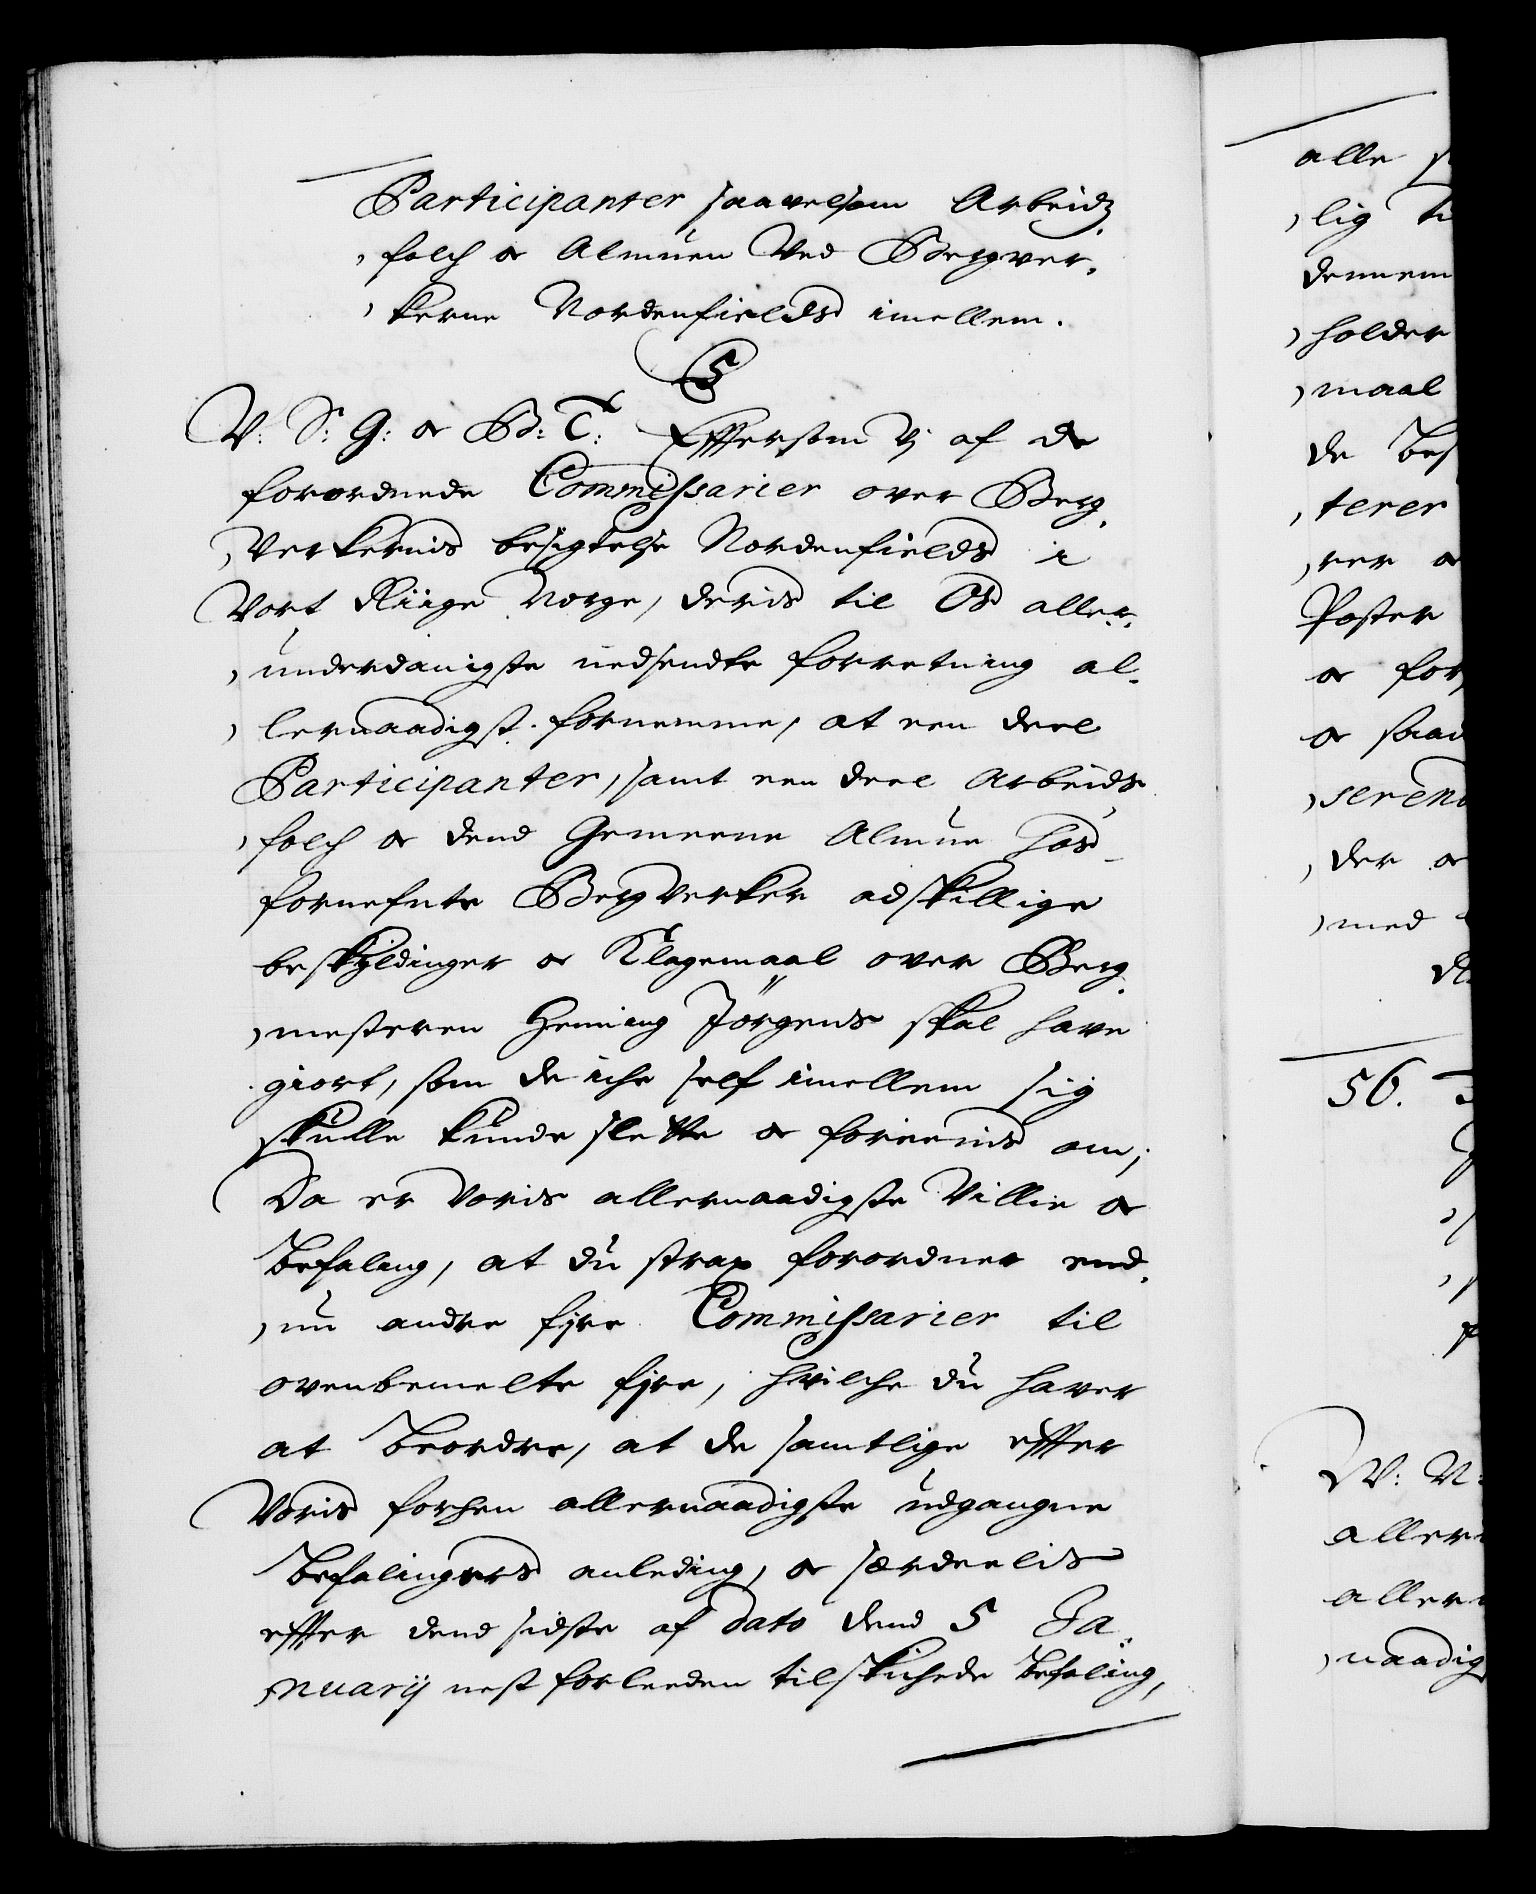 Participanter saavelsom Arbeids
folch oc Almuen Ved Bergver¸
kerne Nordenfields imellem.
V: S: G: oc B: T: Effersom Vj af de
forordnede Commissarier over Berg¸
Verkernis besigtelse Nordenfields i
Vort Riige Norge, deris til Os aller¸
underdanigste nedsendte forretning al¸
lernaadigst fornemme, at een deel
Participanter, samt een deel Arbeids
folch oc dend Gemeene Almue hos
fornefnte Bergverker adskillige
beskyldinger oc Klagemaal over Berg¸
mesteren Henning Jörgens skal have
giort, som de iche self imellem sig
skulle kunde slette oc foreenis om;
Da er Voris allernaadigste Villie oc
Befaling, at du strax forordner end¸
nu andre fire Commissarier til
ovenbemelte fire, hvilche du haver
at Beordre, at de samtlige effter
Voris forhen allernaadigste udgangne
Befalingers anleding, oc særdeelis
effter dend sidste af dato dend 5 Ja¸
nuarij nest forleeden tilskichede Befaling,
alle
lig
dennem
holder
maal
de
terer
rer oc
Poster
oc
oc
der oc
med
56.
W: N:
naadig